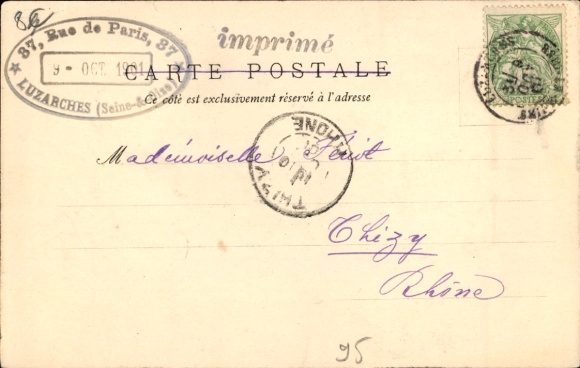 86
37, Rue de Paris, 37
9 - OCT. 1901
LUZARCHES (Seine-&-Oise)
imprimé
CARTE POSTALE
Ce côté est exclusivement réservé à l'adresse
POSTES
THIZY
RHONE
Mademoiselle
Thizy
Rhône
95